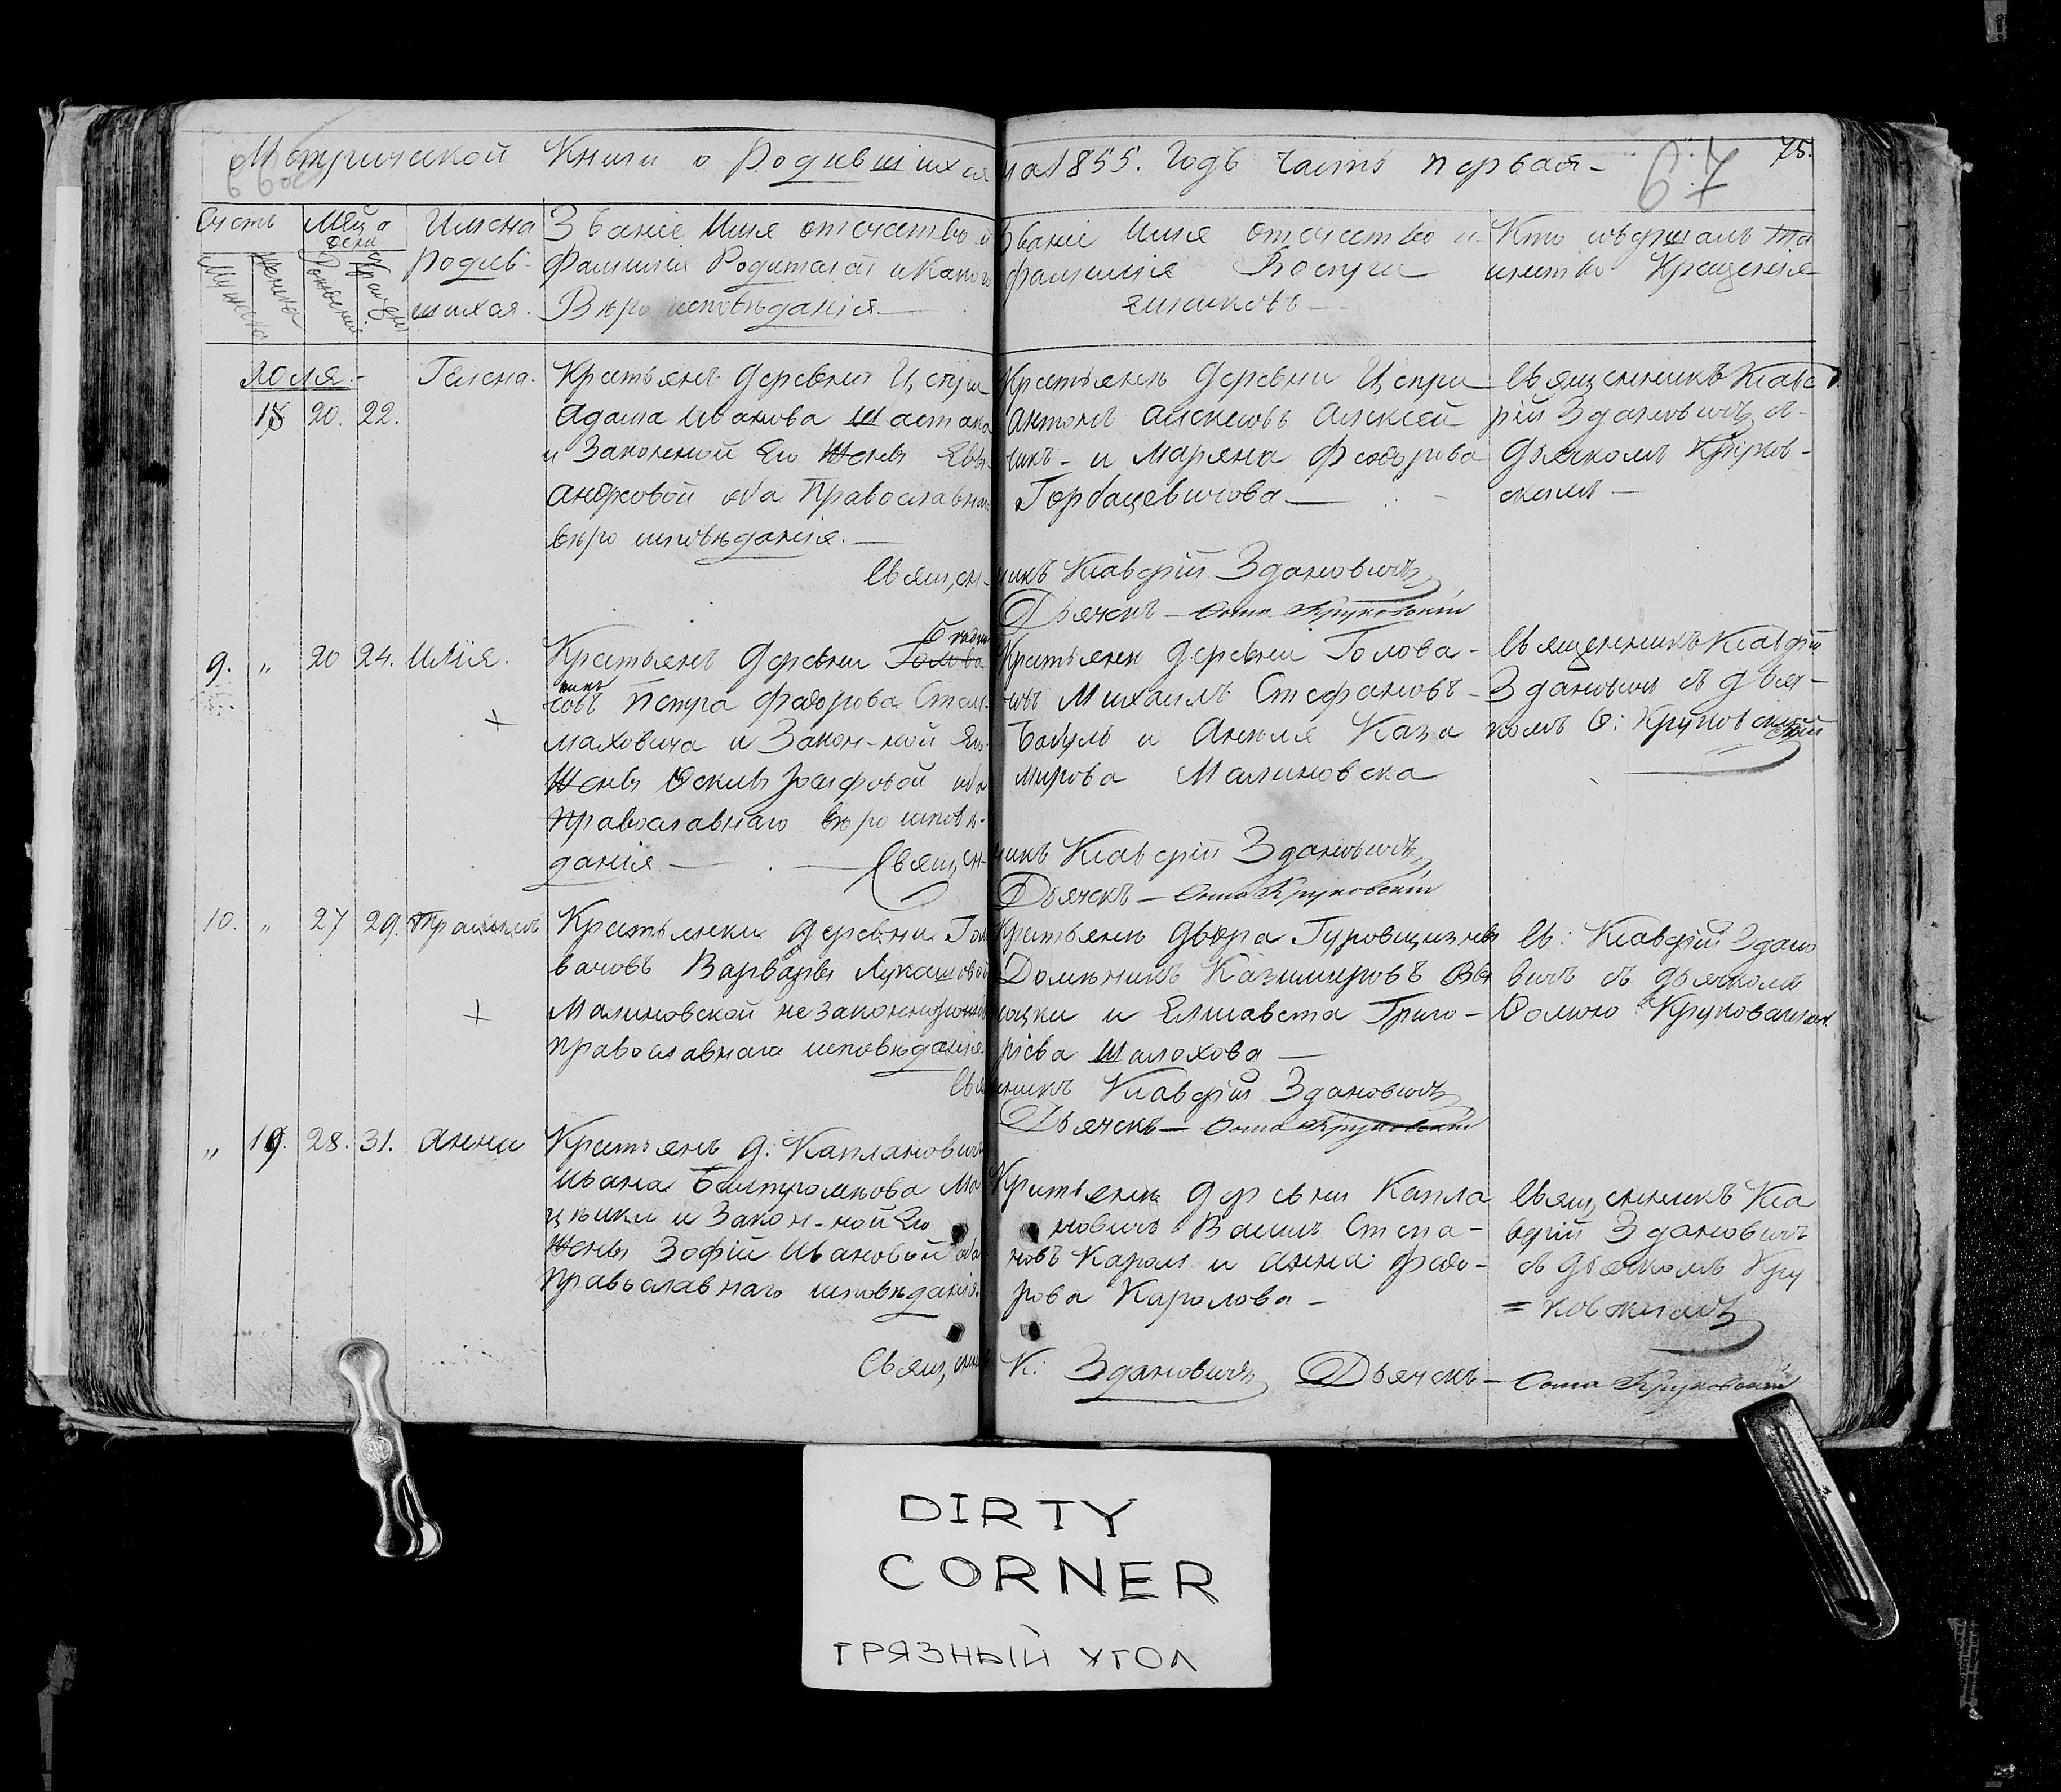 Метрической Книги о Родившихся на 1855. Годъ часть первая
75.
67
Счетъ
Мужеска
Женска
Мѣц. и дени
Рожденія
Крещенія
Имена
Родив-
шихся.
Званіе Имя отечество и
Фамилія Родителей и Какого
Вѣро исповѣданія
Званіе Имя отечество и
фамилія Воспри
емниковъ
Кто совершалъ та
инство Крещенія
Юоля.
18 20. 22.
Гелена.
Крестьянъ деревни Цепры
Адама Иванова Шастака
и Законной Его Жены Евы
Андреовой оба Православнаго
вѣро исповѣданія.
Крестьяне деревни Цепры
Антонъ Алексѣевъ Алексѣй
чикъ - и Маряна Феодорова
Горбацевичова
Священникъ Ксаве
рій Здановичъ съ
Дьячкомъ Круков-
скимъ
Священникъ Ксаверій Здановичъ
Дьячекъ - Ѳома Круковскій
9. " 20 24. Илія.
Крестьянъ деревни Голова
човъ Петра Феодорова Стель-
маховича и Закон-ной Его
Жены Ѳеклы Іосифовой оба
Православнаго вѣро исповѣ-
данія
Крестьяне деревни Голова-
човъ Михаилъ Стефановъ
Бакуль и Анеля Кази
мирова Малиновска
Священникъ Ксаверій
Здановичъ съ дьяч-
комъ Ѳ: Круковскимъ
Священникъ Ксаверій Здановичъ
Дьячекъ - Ѳома Круковскій
10. " 27 29.
Крестьянки деревни Голо
вачовъ Варвары Лукашовой
Малиновской незаконнорожденъ
православнаго исповѣданія
Крестьяне двора Гуровщизны
Домѣникъ Казимировъ
и Елисавета Григо-
ріева Шалохова
Св: Ксаверій Здано
вичъ съ дьячкомъ
Ѳомою Круковскимъ
Священникъ Ксаверій Здановичъ
Дьячекъ - Ѳома Круковскій
" 19. 28. 31. Анна
Крестьянъ д: Каплановичъ
Ивана Балтромѣова
и Закон-ной Его
Жены Зофіи Ивановой оба
Православнаго исповѣданія.
Крестьяне деревни Капла
новичъ Василь Степа-
новъ Кароль и Анна Федо-
рова Каролова -
Священникъ Кса
верій Здановичъ
съ дьячкомъ Кру
= ковскимъ
Священникъ К: Здановичъ Дьячекъ - Ѳома Круковскій
DIRTY
CORNER
ГРЯЗНЫЙ УГОЛ